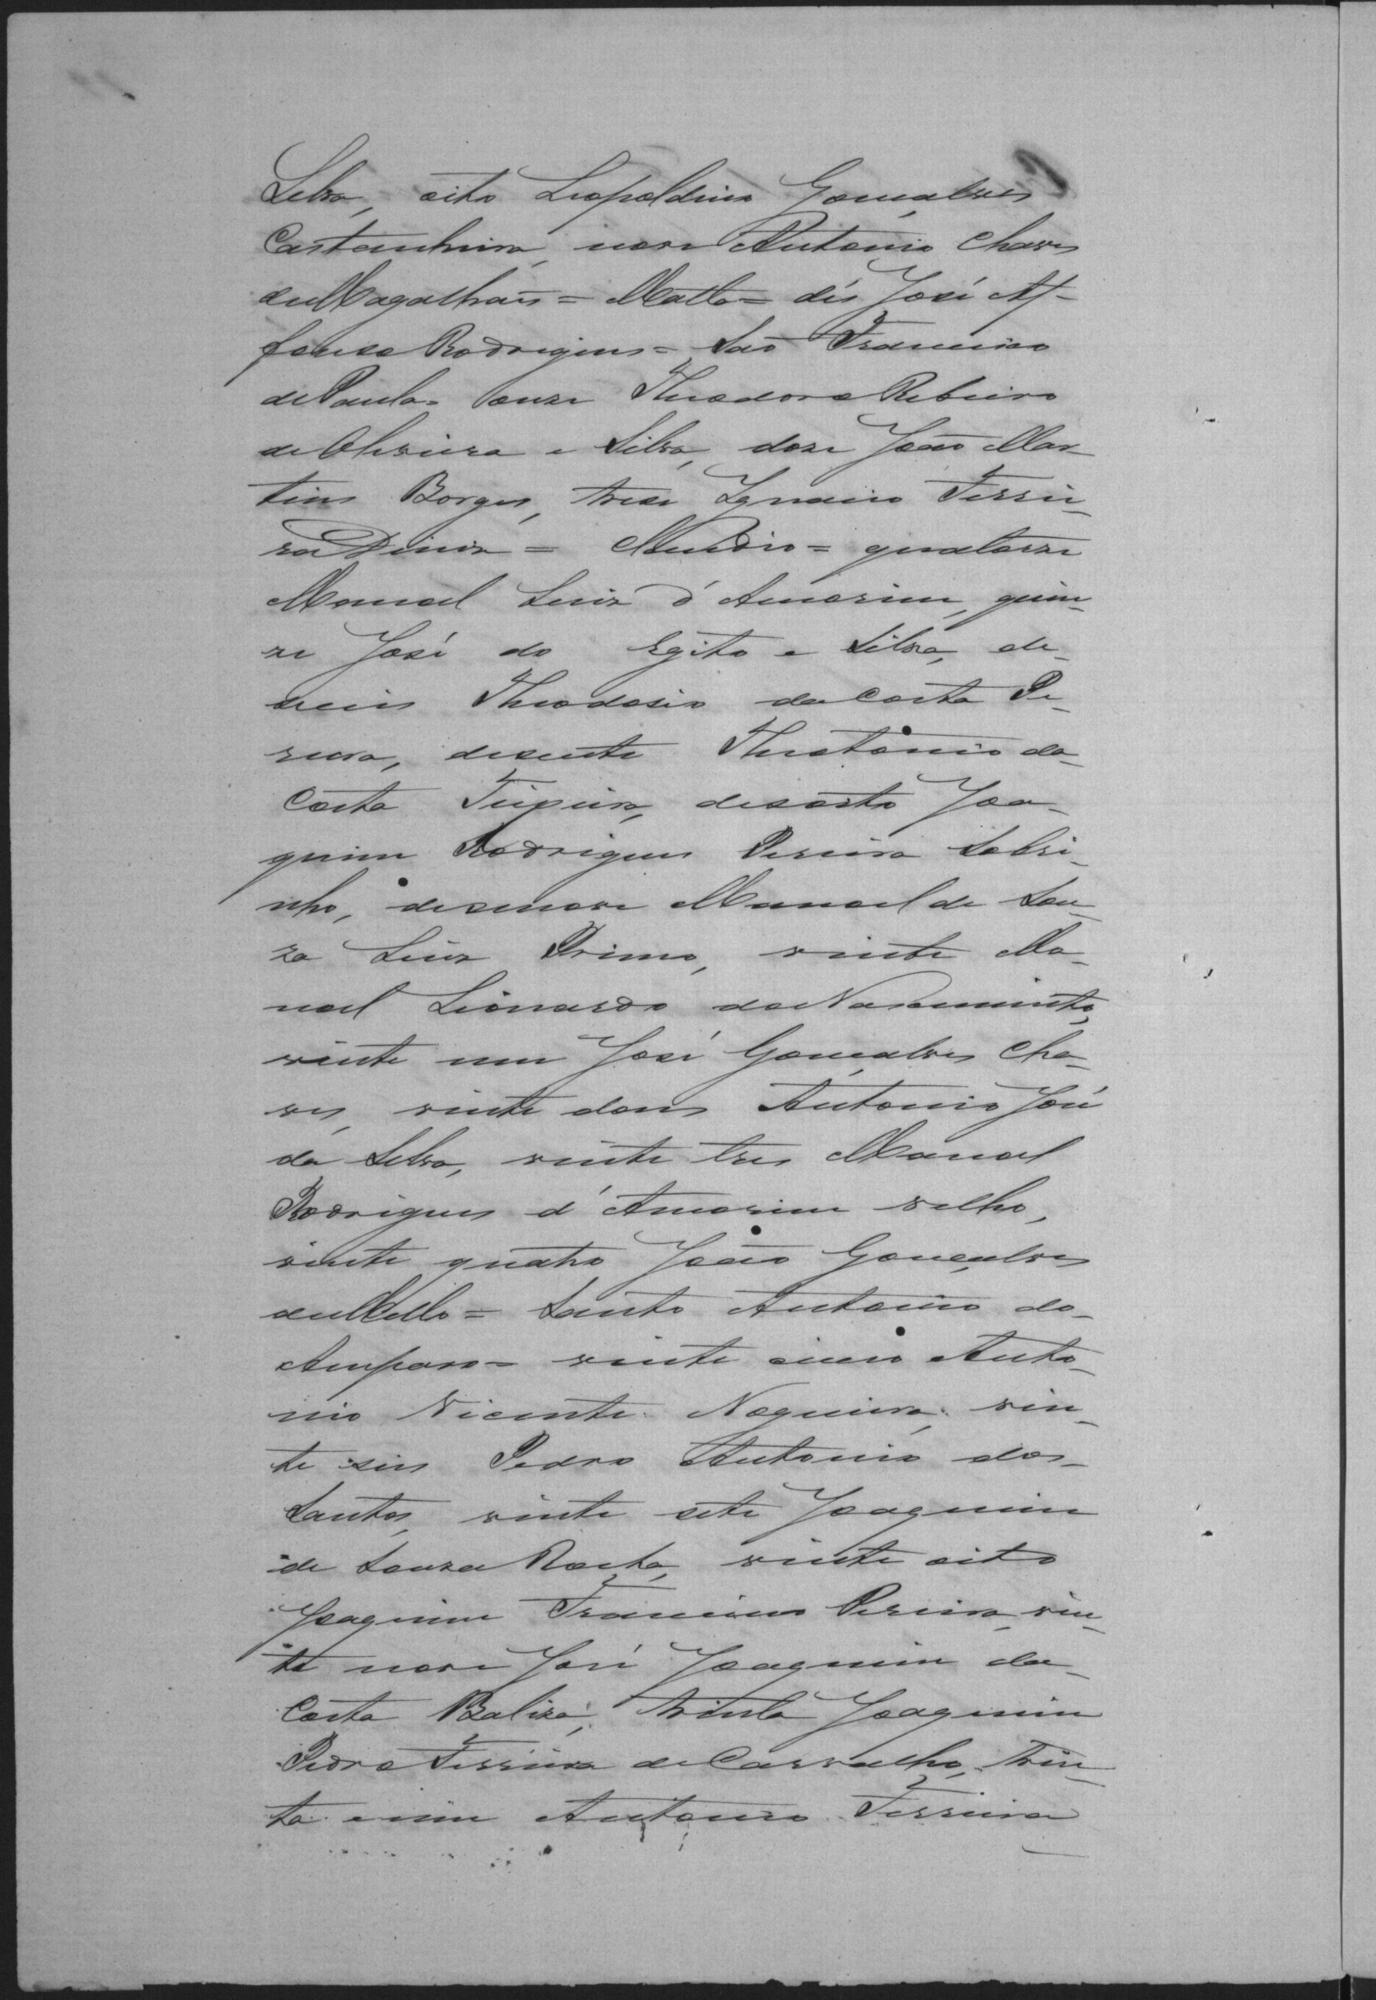 Silva, oito Leopoldino Gonçalves
Castanheira, nove Antonio Chaves
de Magalhães = Matto = dés José Af-
fonso Rodrigues = São Francisco
de Paula = onze Theodoro Ribeiro
de Oliveira e Silva, doze João Mar-
tins Borges, treze Ignacio Ferrei-
ra Diniz = = quatorze
Manoel Luiz d'Amorim, quin-
ze José do Egito e Silva, de-
seseis Theodosio da Costa Pe-
reira, desesete Theotonio da
Costa Teixeira, desoito Joa-
quim Rodrigues Pereira Sobri-
nho, desenove Manoel de Sou-
za Luiz Primo, vinte Ma-
noel Leonardo do Nascimento,
vinte um José Gonçalves Cha-
ves, vinte dous Antonio José
da Silva, vinte tres Manoel
Rodrigues d'Amorim velho,
vinte quatro João Gonçalves
de Mello = Santo Antonio do
Amparo = vinte cinco Anto-
nio Vicente Nogueira, vin-
te seis Pedro Antonio dos
Santos, vinte sete Joaquim
de Souza Rocha, vinte oito
Joaquim Francisco Pereira, vin-
te nove José Joaquim da
Costa Baliza, trinta Joaquim
Pedro Ferreira de Carvalho, trin-
ta e um Antonio Ferreira